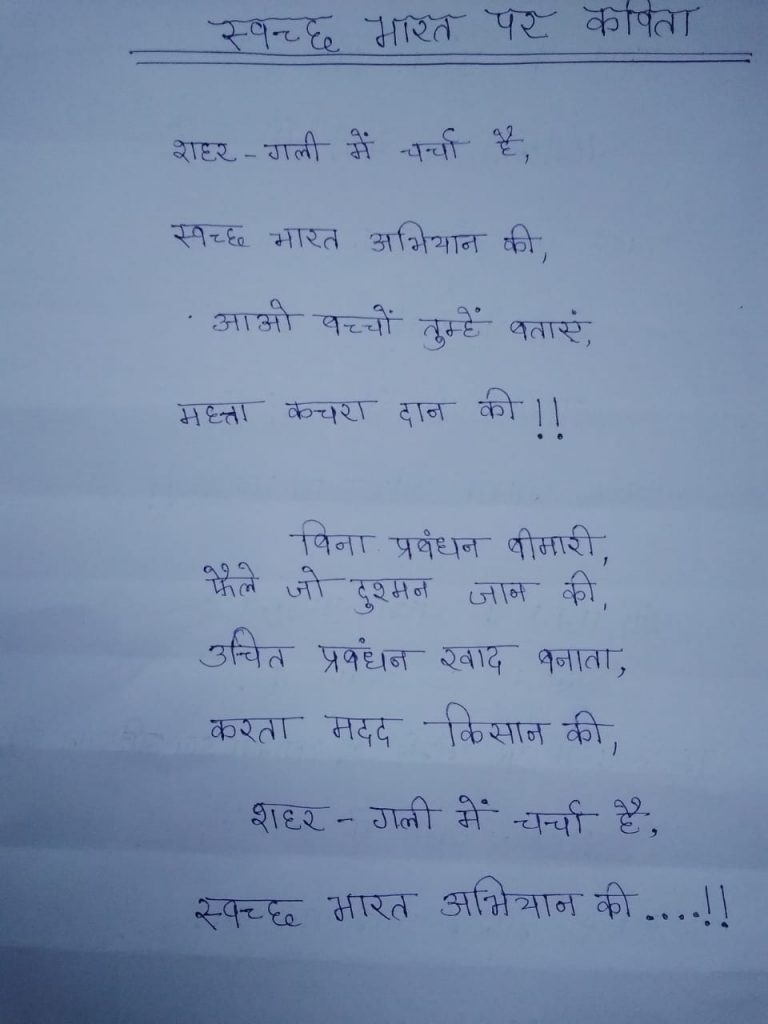 स्वच्छ भारत पर कविता
शहर - गली में चर्चा है,
स्वच्छ भारत अभियान की,
आओ बच्चों तुम्हें बताएं,
महत्ता कचरा दान की !!
बिना प्रबंधन बीमारी,
फैले जो दुश्मन जान की,
उचित प्रबंधन खाद बनाता,
करता मदद किसान की,
शहर - गली में चर्चा है,
स्वच्छ भारत अभियान की ....!!